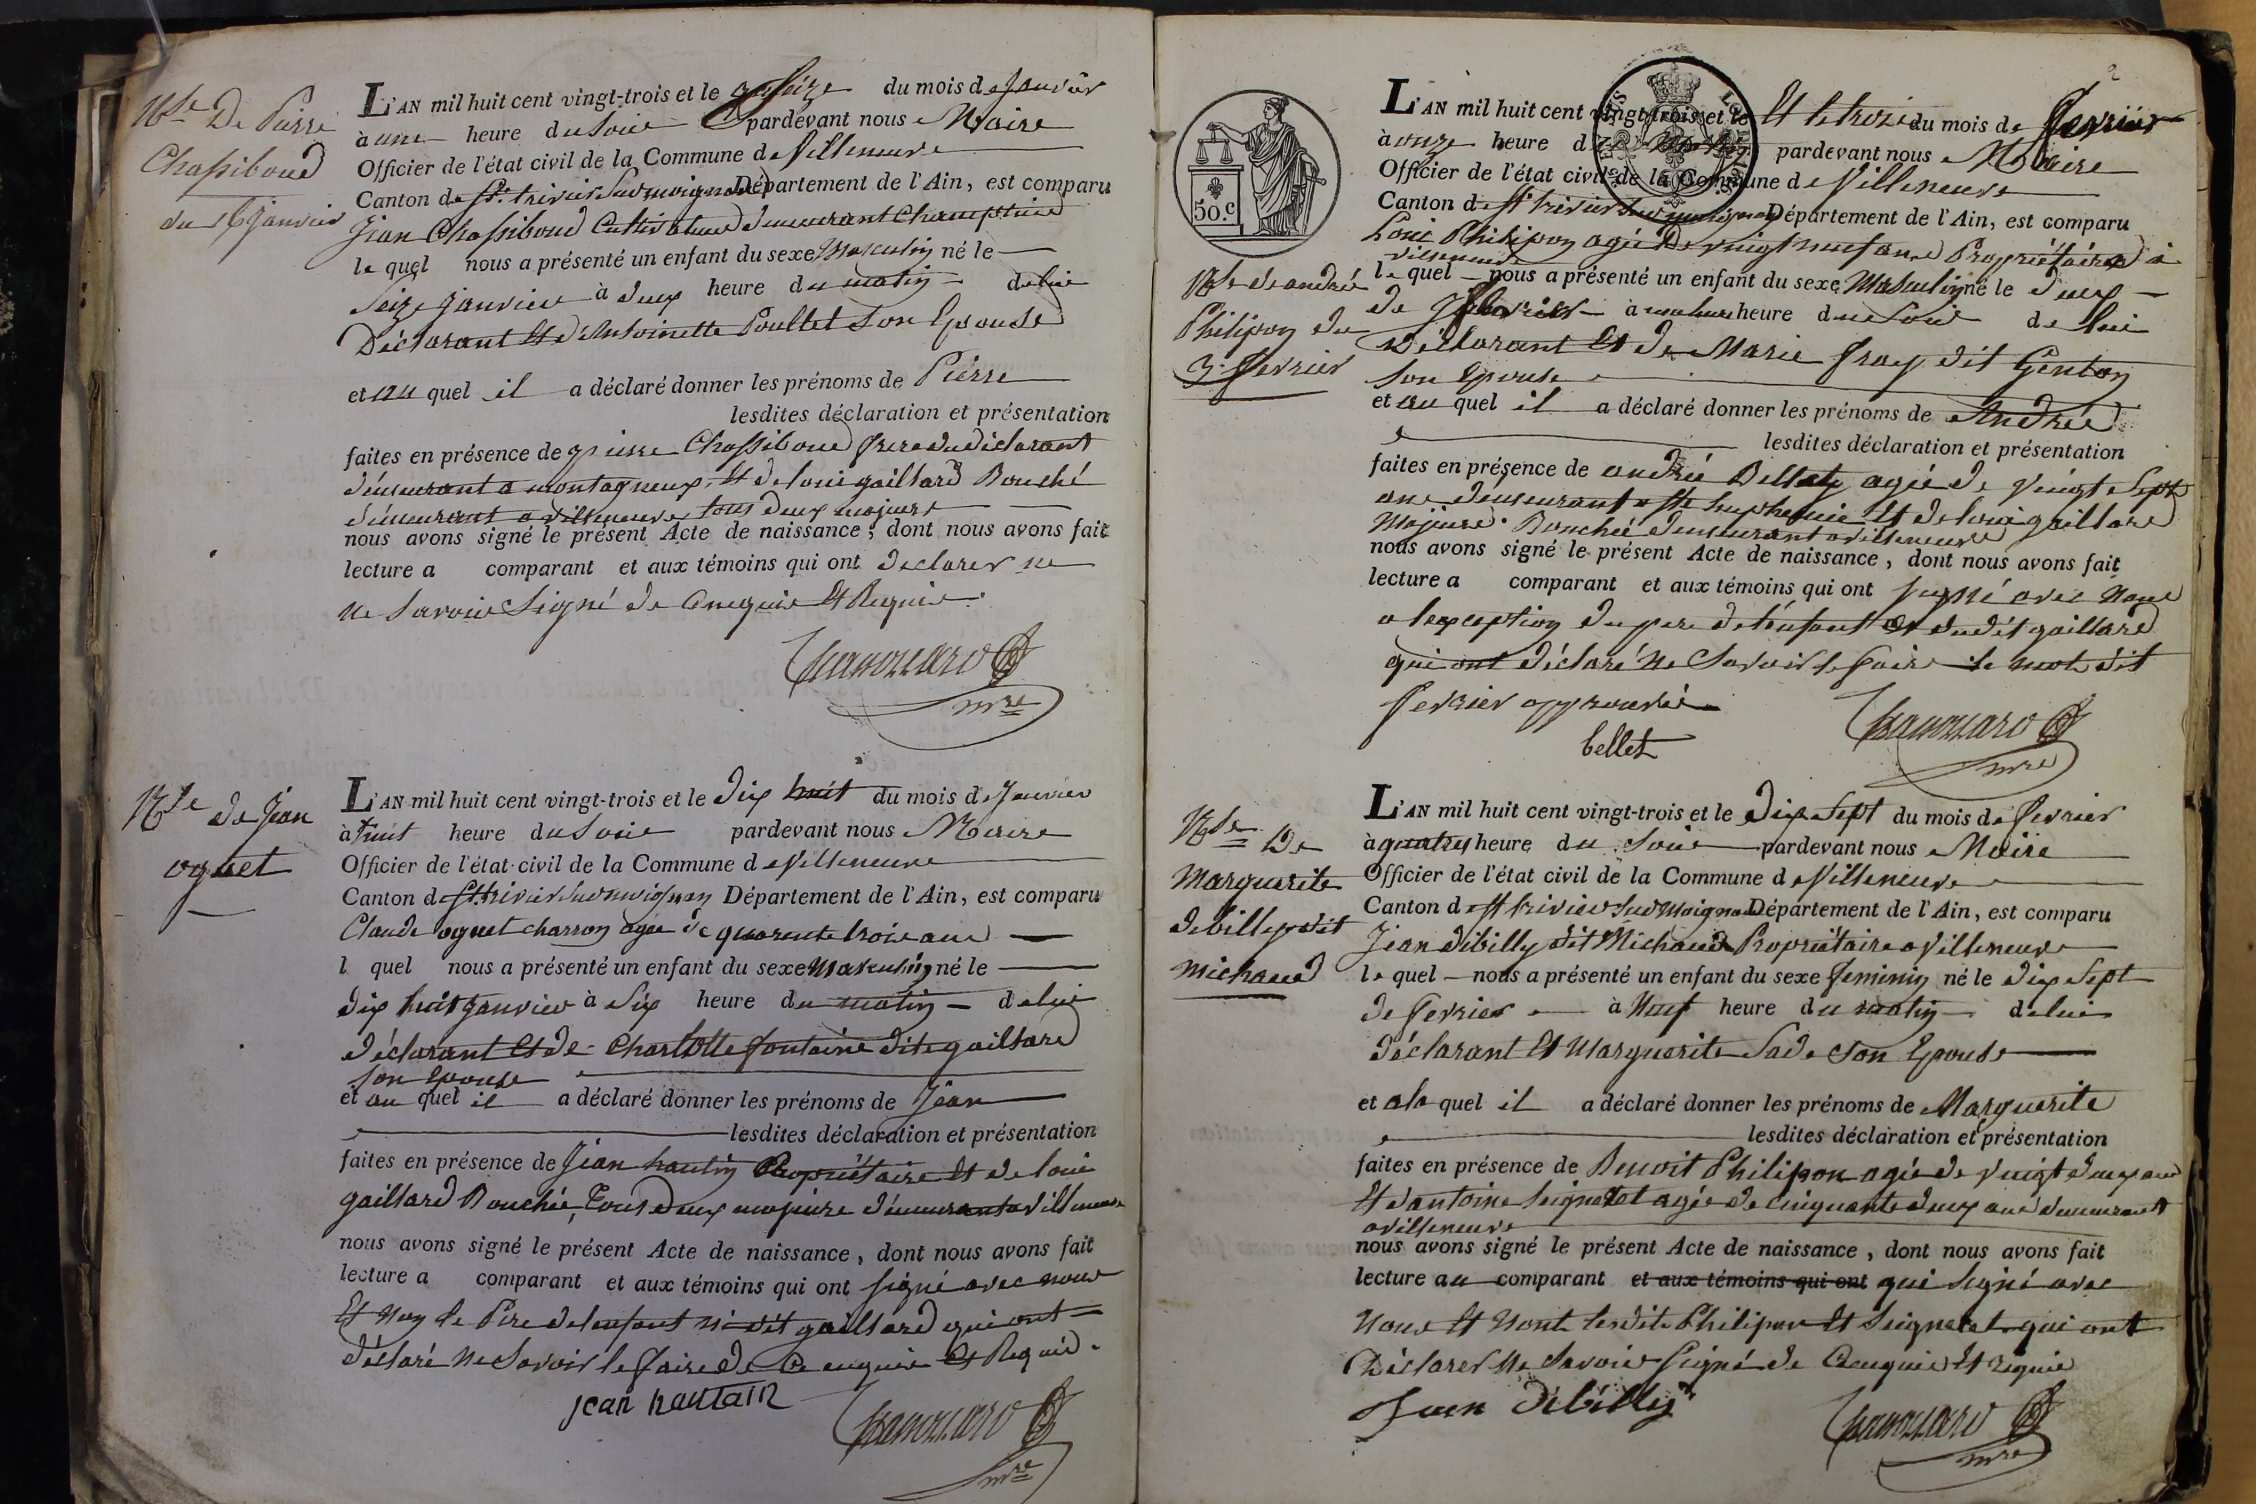 Nce De Pierre
Chassiboud
du 16 janvier
L'AN mil huit cent vingt-trois et le seize du mois de Janvier
à une heure du Soir pardevant nous Maire
Officier de l'état civil de la Commune de Villeneuve
Canton de St. trivier Sur moignand Département de l'Ain, est comparu
Jean Chassiboud Cultivateur demeurant Champtier
le quel nous a présenté un enfant du sexe Masculin né le
Seize janvier à deux heure du matin de lui
Déclarant Et d'Antoinette Poullet Son Epouse
et au quel il a déclaré donner les prénoms de Pierre
lesdites déclaration et présentation
faites en présence de pierre Chassiboud frere du déclarant
demeurant a montagneux, Et de loui gaillard Bouché
demeurant a villeneuve tous deux majeurs
nous avons signé le présent Acte de naissance ; dont nous avons fait
lecture a comparant et aux témoins qui ont declarer ne
ne Savoir Signé de Cenquis Et Requis.
mre
Nce de Jean
oguet
L'AN mil huit cent vingt-trois et le dix huit du mois de Janvier
à huit heure du Soir pardevant nous Maire
Officier de l'état civil de la Commune de Villeneuve
Canton de St. trivier Sur moignan Département de l'Ain, est comparu
Claude oguet charron agée de quarente trois ans
l quel nous a présenté un enfant du sexe Masculin né le
dix huit Janvier à Six heure du matin de lui
déclarant Et de Charlotte fontaine dite gaillard
son Epouse
et au quel il a déclaré donner les prénoms de Jean
lesdites déclaration et présentation
faites en présence de Jean hautin Propriétaire Et de loui
gaillard Bouchée, Tous deux majeure demeurant a Villeneuve
nous avons signé le présent Acte de naissance, dont nous avons fait
lecture a comparant et aux témoins qui ont signé avec nous
Et Non le Pere de lenfant ni dit gaillard qui ont
déclaré Ne Savoir le faire de Ce enquis Et Requis.
jean hautain
mre
2
50.c
Nce de andré
Philipon du
3. fevrier
L'AN mil huit cent vingt-trois et le Et le trois du mois de fevrier
à onze heure du matin pardevant nous Maire
Officier de l'état civil de la Commune de Villeneuve
Canton de St trivier Sur moignan Département de l'Ain, est comparu
Loui Philipon agée De vingt neuf ans Propriétaire à
villeneuve
le quel nous a présenté un enfant du sexe Masculin né le deux
de fevrier à heure du Soir de lui
Déclarant Et de Marie fray dit Genton
Son Epouse
et au quel il a déclaré donner les prénoms de André
lesdites déclaration et présentation
faites en présence de andrée Bellet agée de vingt Sept
ans demeurant a Ste huphemie Et de loui gaillard
Majeure. Bouchée demeurant a villeneuve
nous avons signé le présent Acte de naissance, dont nous avons fait
lecture a comparant et aux témoins qui ont signé avec nous
a lexception du pere de lénfant Et dudit gaillard
qui ont déclaré ne Savoir le faire le mot dit
fevrier approuvé
bellet
mre
Nce De
Marguerite
debilly dit
michaud
L'AN mil huit cent vingt-trois et le Dix Sept du mois de fevrier
à quatre heure du Soir pardevant nous Maire
Officier de l'état civil de la Commune de Villeneuve
Canton de St trivier Sur Moignan Département de l'Ain, est comparu
Jean débilly dit Michaud Propriétaire a Villeneuve
le quel nous a présenté un enfant du sexe feminin né le dix Sept
de fevrier à Neuf heure du matin de lui
déclarant Et Marguerite Sade Son Epouse
et a la quel il a déclaré donner les prénoms de Marguerite
lesdites déclaration et présentation
faites en présence de Benoit Philipon agée de vingt deux ans
Et d'antoine Seignetet agée de cinquante deux ans demeurant
a villeneuve
nous avons signé le présent Acte de naissance, dont nous avons fait
lecture au comparant et aux témoins qui ont qui Signé avec
Nous Et Nont lesdits Philipon Et Seignetet qui ont
Déclarer Ne Savoir Signé de Cenquis Et requis
Jean débilly
mre